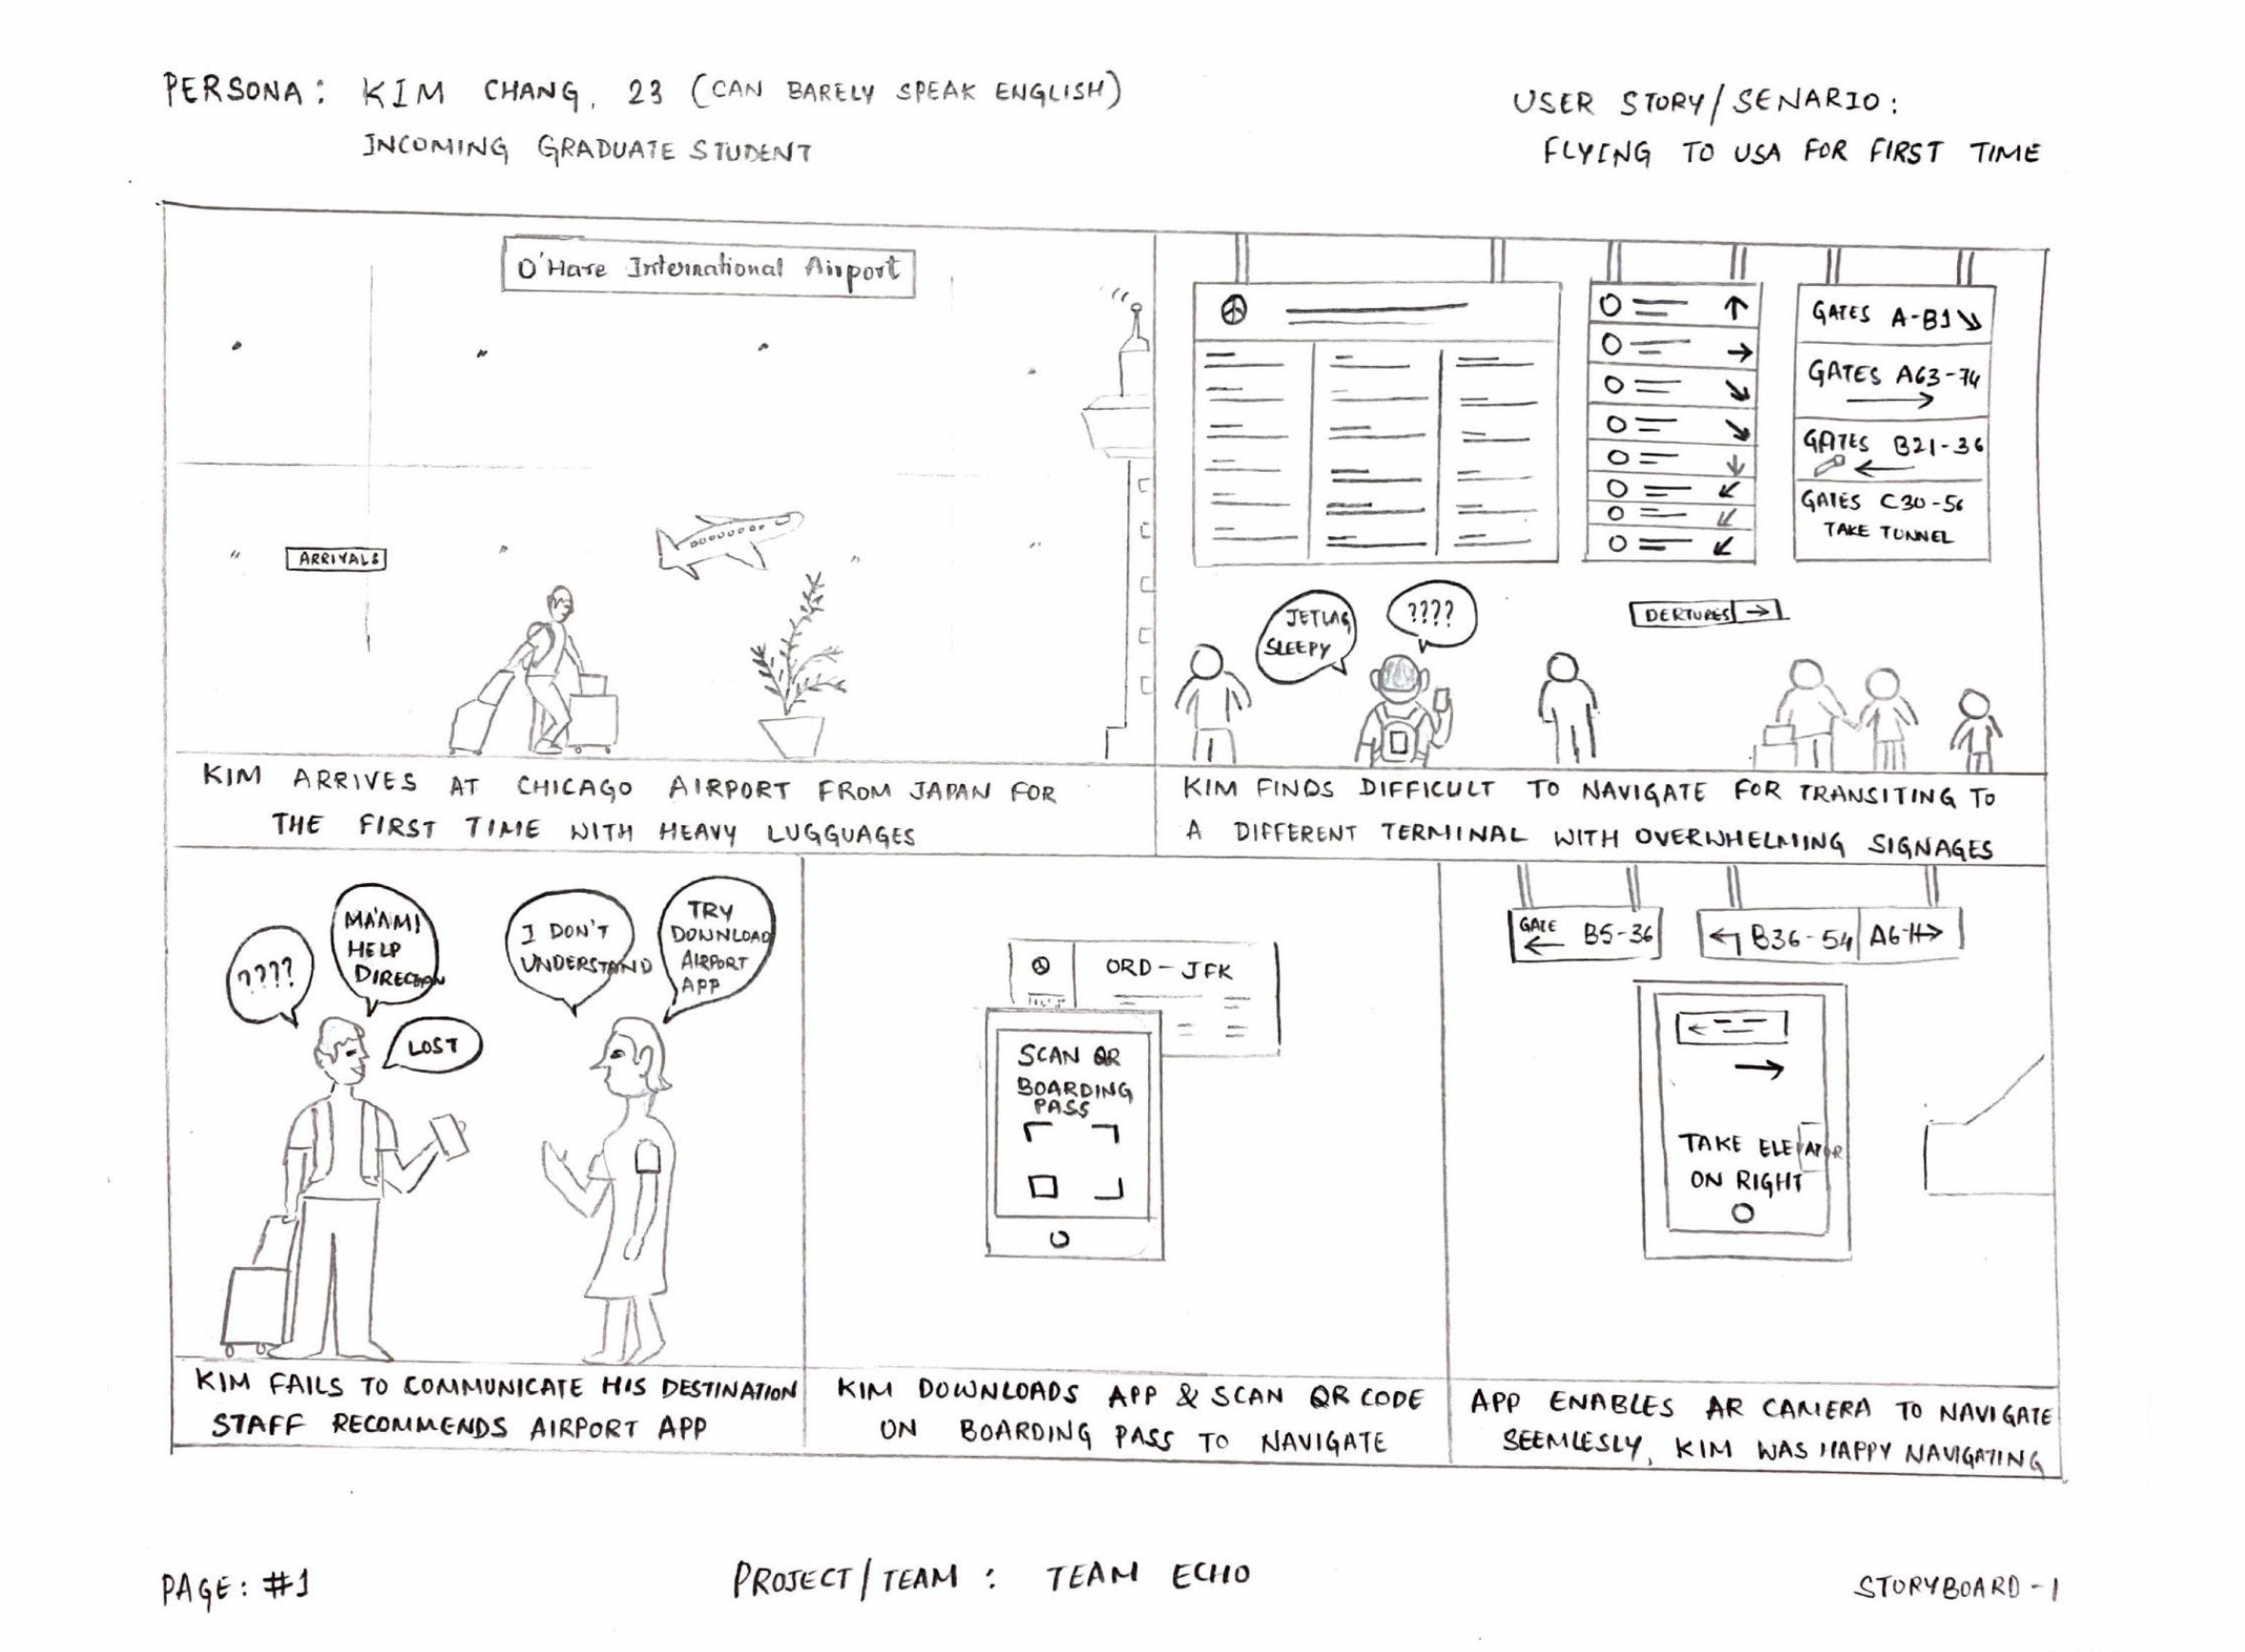 PERSONA: KIM CHANG, 23 (CAN BARELY SPEAK ENGLISH)
INCOMING GRADUATE STUDENT
USER STORY/SENARIO:
FLYING TO USA FOR FIRST TIME
O'Hare International Airport
ARRIVALS
KIM ARRIVES AT CHICAGO AIRPORT FROM JAPAN FOR
THE FIRST TIME WITH HEAVY LUGGUAGES
GATES A-B1
GATES A63-74
GATES B21-36
GATES C30-56
TAKE TUNNEL
JETLAG
SLEEPY
????
DERTURES
KIM FINDS DIFFICULT TO NAVIGATE FOR TRANSITING TO
A DIFFERENT TERMINAL WITH OVERWHELMING SIGNAGES
????
MA'AM!
HELP
DIRECTION
LOST
I DON'T
UNDERSTAND
TRY
DOWNLOAD
AIRPORT
APP
KIM FAILS TO COMMUNICATE HIS DESTINATION
STAFF RECOMMENDS AIRPORT APP
ORD - JFK
SCAN QR
BOARDING
PASS
KIM DOWNLOADS APP & SCAN QR CODE
ON BOARDING PASS TO NAVIGATE
GATE B5-36
B36-54
TAKE ELEVATOR
ON RIGHT
APP ENABLES AR CAMERA TO NAVIGATE
SEEMLESLY, KIM WAS HAPPY NAVIGATING
PAGE: #1
PROJECT/TEAM: TEAM ECHO
STORYBOARD-1